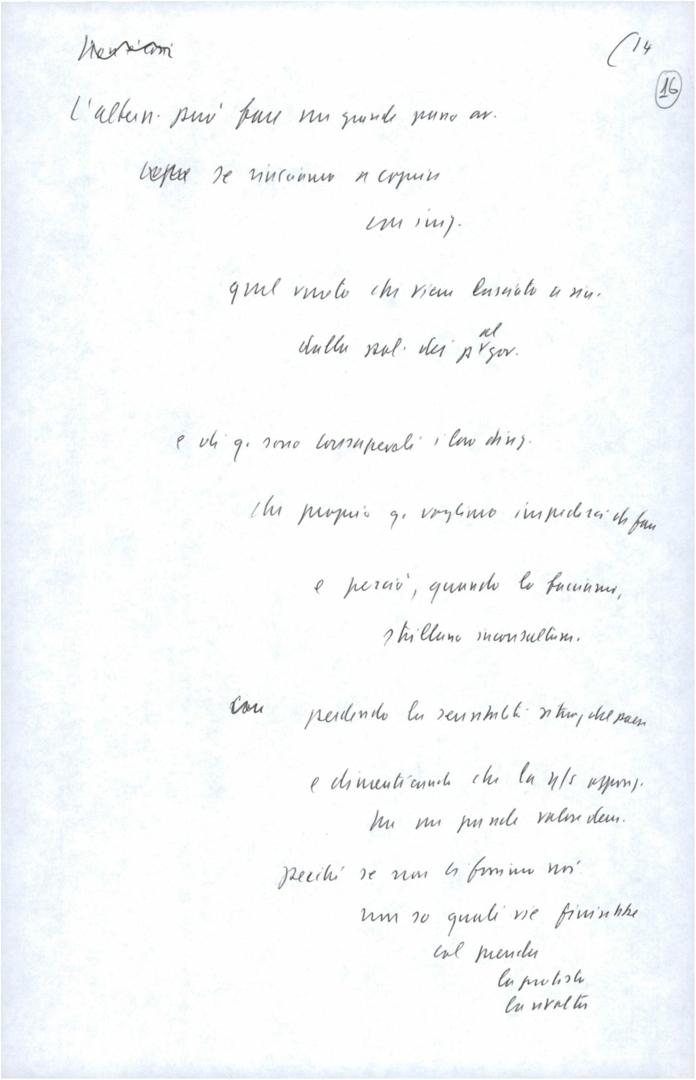 (14
16
L'altern. può fare un grande passo av.
se riusciamo a coprire
con ing.
quel vuoto che viene lasciato a sin.
dalla pol. dei p al gov.
e di q. sono consapevoli i loro dirig.
che proprio q. vogliono impedirci di fare
e perciò, quando lo facciamo,
strillano inconsultam.
perdendo la sensibilità del paese
e dimenticando che la n/s oppos.
ha un grande valore dem.
perché se non ci fossimo noi
non so quali vie finirebbe
col prendere
la protesta
la rivolta